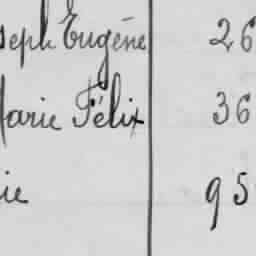 seph Eugéne 26
Marie Félix 36
ie 95